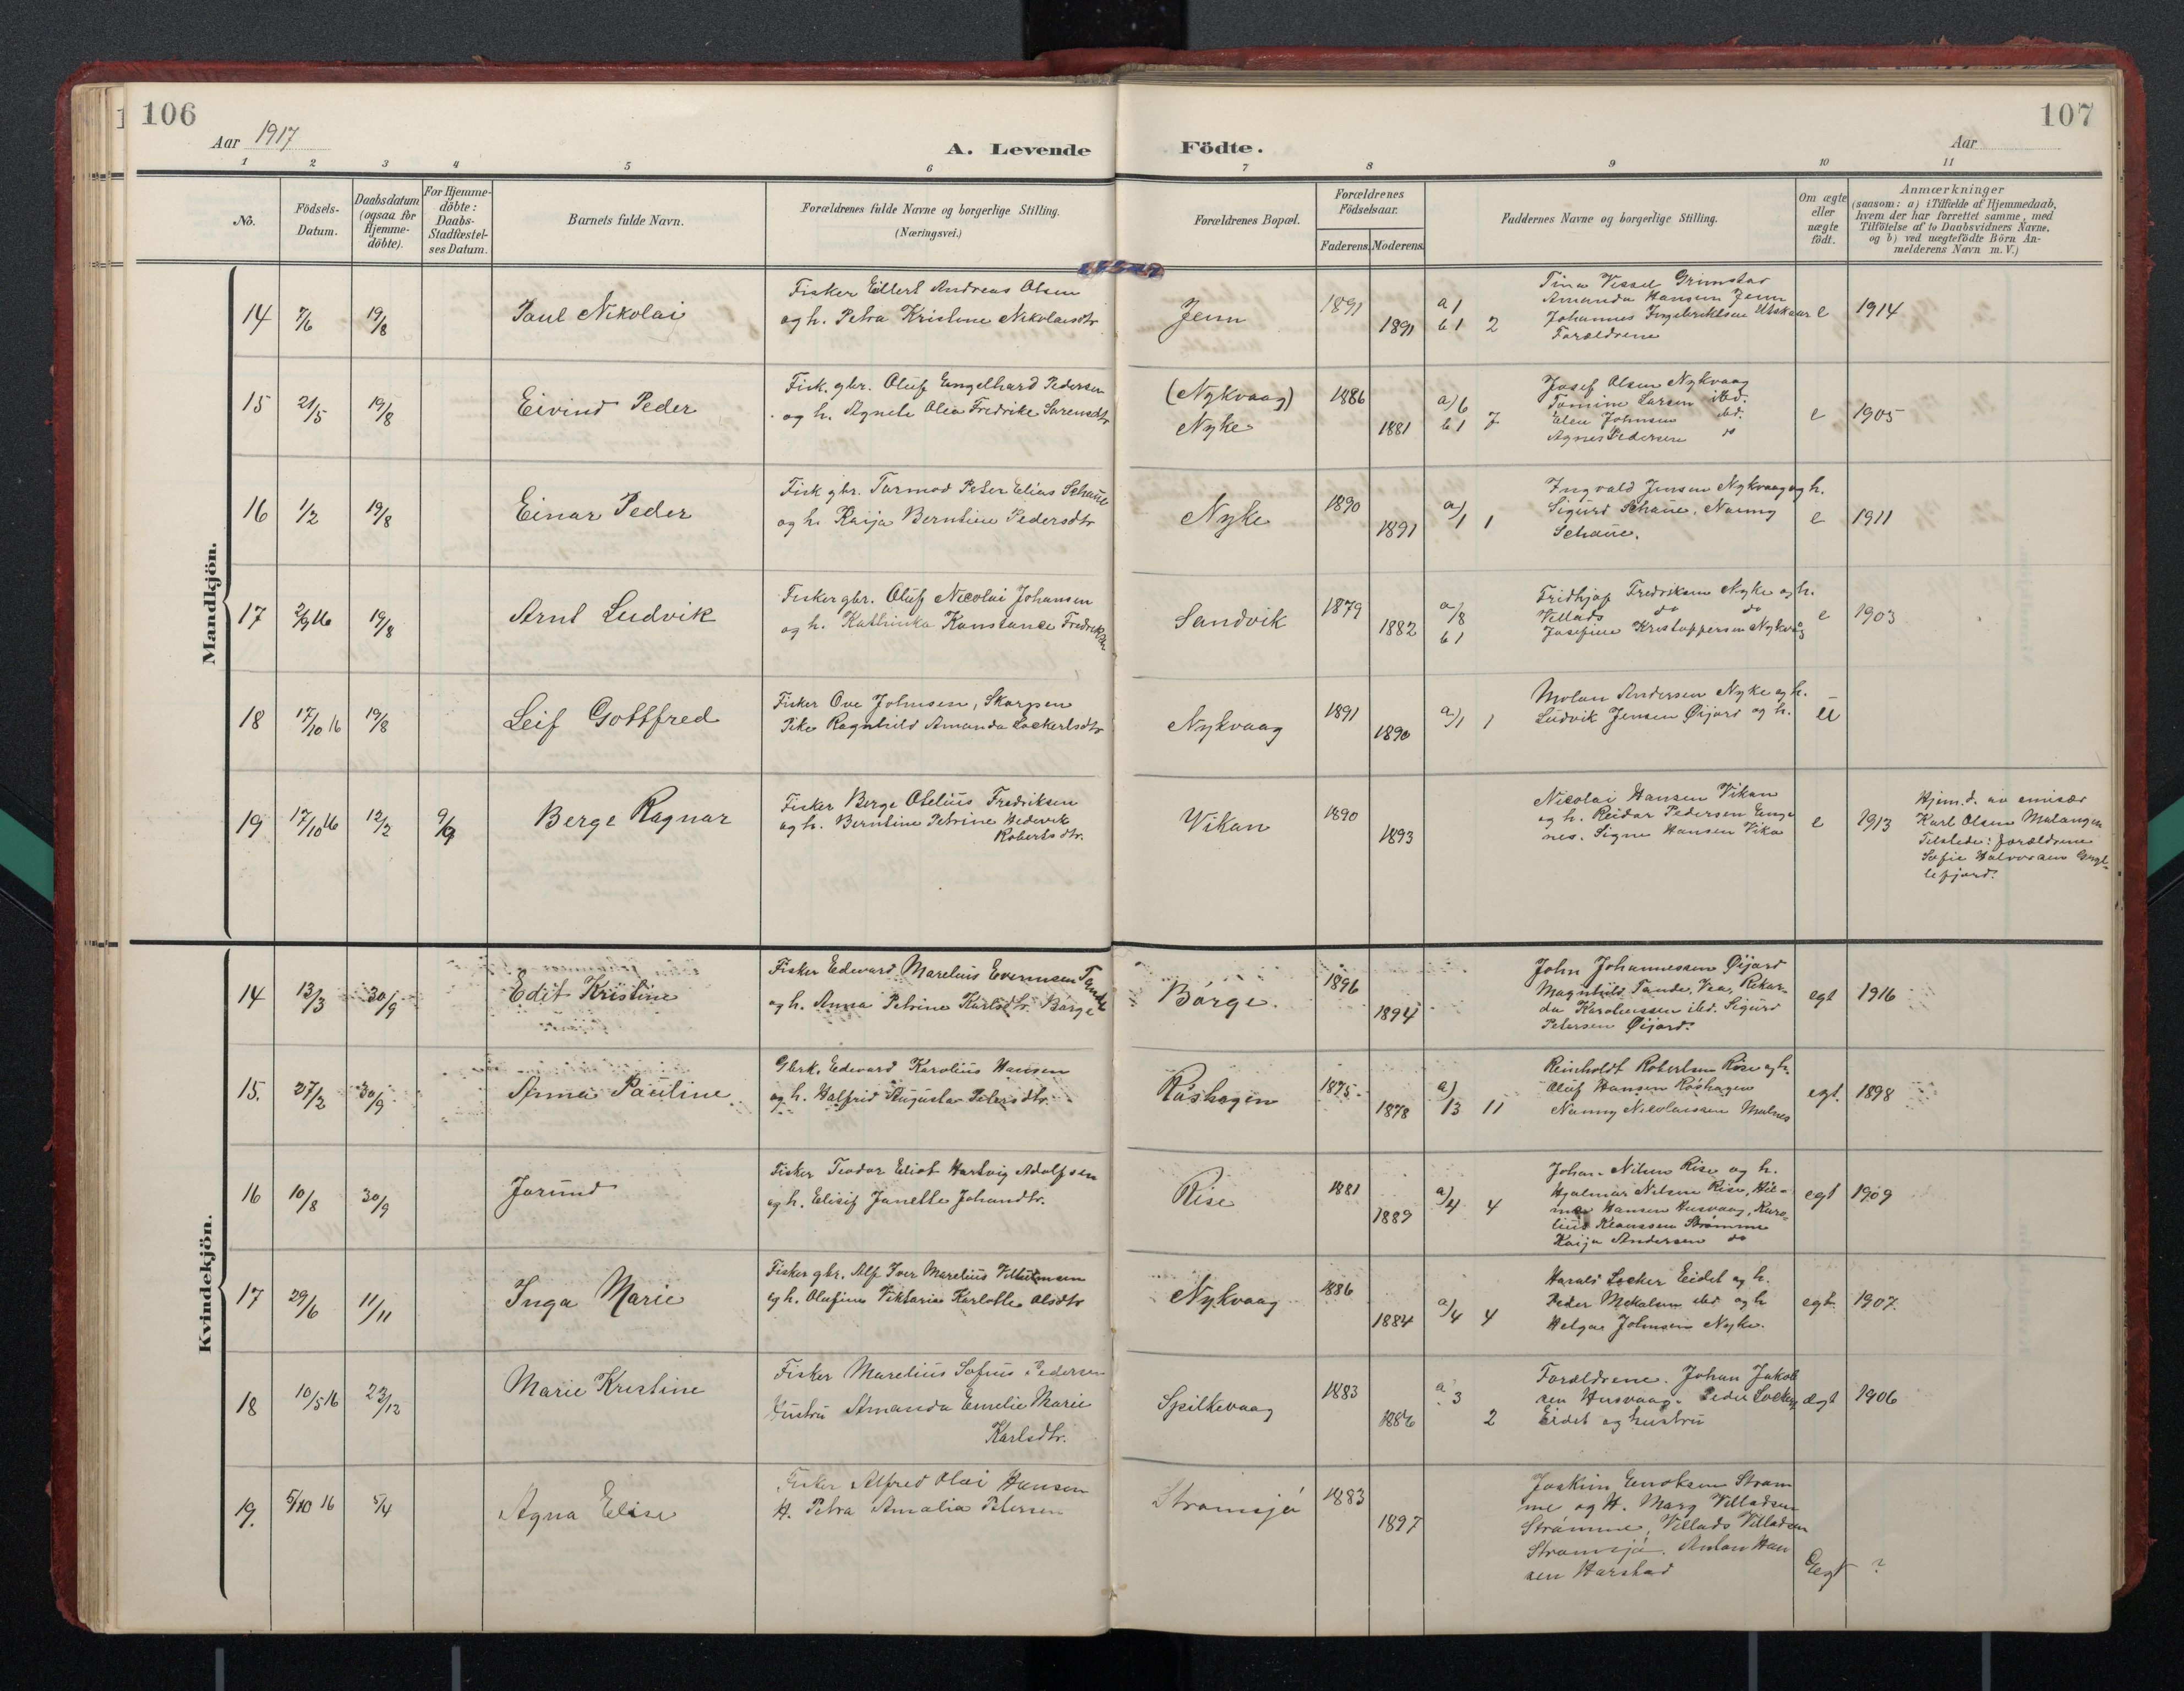 106
107
Aar 1917
A. Levende
Födte.
Aar
1 2 3 4 5 6 7 8 9 10 11
No.
Födsels-
Datum.
Daabsdatum
(ogsaa for
Hjemme-
döbte).
For Hjemme-
döbte:
Daabs-
Stadfæstel-
ses Datum.
Barnets fulde Navn.
Forældrenes fulde Navne og borgerlige Stilling.
(Næringsvei.)
Forældrenes Bopæl.
Forældrenes
Födselsaar.
Faderens.
Moderens.
Faddernes Navne og borgerlige Stilling.
Om ægte
eller
uægte
födt.
Anmærkninger
(saasom: a) i Tilfælde af Hjemmedaab,
hvem der har forrettet samme, med
Tilföielse af to Daabsvidners Navne,
og b) ved uægtefödte Börn An-
melderens Navn m. V.)
Mandkjön.
14 7/6 19/8 Paul Nikolai
Fisker Eilert Andreas Olsen
og h. Petra Kristine Nikolaisdtr
Jenn 1891 1891
a 1
b 1 2
Tina Vissel Grimstad
Amanda Hansen Jenn
Johannes Ingebriktsen
Forældrene
e 1914
15 21/5 19/8 Eivind Peder
Fisk. gbr. Oluf Engelhard Pedersen
og h. Agnete Olea Fredrike Sørensdtr
(Nykvaag)
Nyke
1886 1881
a) 6
b 1 7
Josef Olsen Nykvaag
Tomine Larsen ibd.
Elen Johnsen ibd.
Agnes Pedersen do
e 1905
16 1/2 19/8 Einar Peder
Fisk gbr. Tormod Peter Elias Schaue
og h. Kaija Berntine Pedersdtr
Nyke 1890 1891
a) 1 1
Ingvald Jensen Nykvaag og h.
Sigurd Schaue, Nanny
Schaue.
e 1911
17 2/9 16 19/8 Arnt Ludvik
Fisker gbr. Oluf Nicolai Johansen
og h. Kathinka Konstance Fredriksdtr
Sandvik 1879 1882
a/8
b 1
Fridhjof Fredriksen Nyke og h.
Villads do do
Josefine Kristoffersen Nykvåg
e 1903
18 17/10 16 19/8 Leif Gottfred
Fisker Ove Johnsen, Skarpen
Pike Ragnhild Amanda Lockertsdtr
Nykvaag 1891 1890
a) 1 1
Molan Andersen Nyke og h.
Ludvik Jensen Øijord og h.
u
19 17/10 16 12/2 9/9 Berge Ragnar
Fisker Berge Otelius Fredriksen
og h. Berntine Petrine Hedevik
Robertsdtr.
Vikan 1890 1893
Nicolai Hansen Vikan
og h. Reidar Pedersen Enge
nes. Signe Hansen Vika
e 1913
Hjem.d. av emisær
Karl Olsen Malangen
Tilstede: forældrene
Sofie Halvorsen Gryl-
lefjord.
Kvindekjön.
14 13/3 30/9 Edit Kristine
Fisker Edvard Marelius Evensen Tande
og h. Anna Petrine Karlsdtr. Børge
Børge. 1896 1894
John Johannessen Øijord
Magnhild Tande, Vea, Rikar-
da Karoliussen ibd. Sigurd
Petersen Øijord.
egt 1916
15. 27/2 30/9 Anna Pauline
Gbrk. Edvard Karolius Hansen
og h. Halfrid Augusta Petersdtr.
Råshagen 1875 1878
a)
13 11
Reinholdt Robertsen Rise og h.
Oluf Hansen Råshagen
Nanny Nicolaissen Malnes
egt. 1898
16 10/8 30/9 Jorund
Fisker Teodor Eliot Hartvig Adolfsen
og h. Elisif Janette Johandtr.
Rise 1881 1889
a) 4 4
Johan Nilsen Rise og h.
Hjalmar Nilsen Rise, Hil-
ma Hansen Husvaag, Karo-
lius Klaussen Strømme
Kaija Andersen do
egt 1909
17 29/6 11/11 Inga Marie
Fisker gbr. Alf Iver Marelius Villumsen
og h. Olufine Viktoria Karlotte Olsdtr
Nykvaag 1886 1884
a) 4 4
Harald Locker Eidet og h.
Peder Mikalsen ibd og h
Helga Johnsen Nyke.
egt. 1907.
18 10/5 16 23/12 Marie Kristine
Fisker Marelius Sofus Pedersen
Hustru Amanda Emelie Marie
Karlsdtr.
Spilkevaag 1883 1886
a. 3
2
Forældrene. Johan Jakob
sen Husvaag. Peder Locker
Eidet og hustru
ægt 1906
19. 5/10 16 5/4 Agna Elise
Fisker Alfred Olai Hansen
H. Petra Amalia Petersen
Strømsjø 1883 1897
Joakim Enoksen Strøm
me og H. Marg Villadsen
Strømme, Villads Villadsen
Strømsjø. Anton Han
sen Harstad
Ægt ?